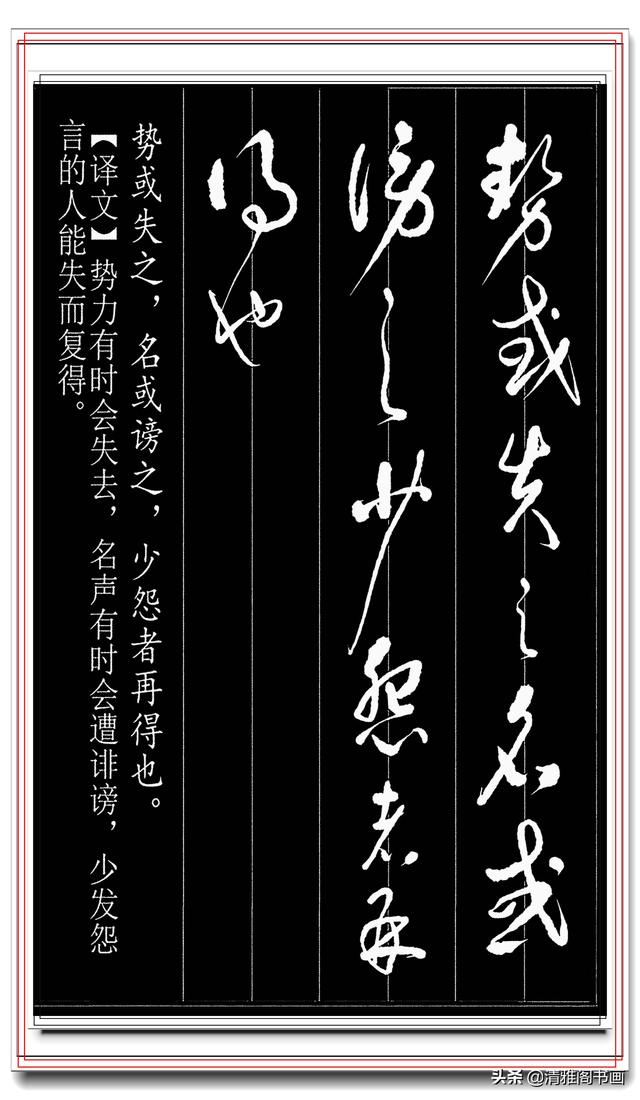 势或失之名或
谤之少怨者再
得也
势或失之，名或谤之，少怨者再得也。
【译文】势力有时会失去，名声有时会遭诽谤，少发怨
言的人能失而复得。
头条 @清雅阁书画